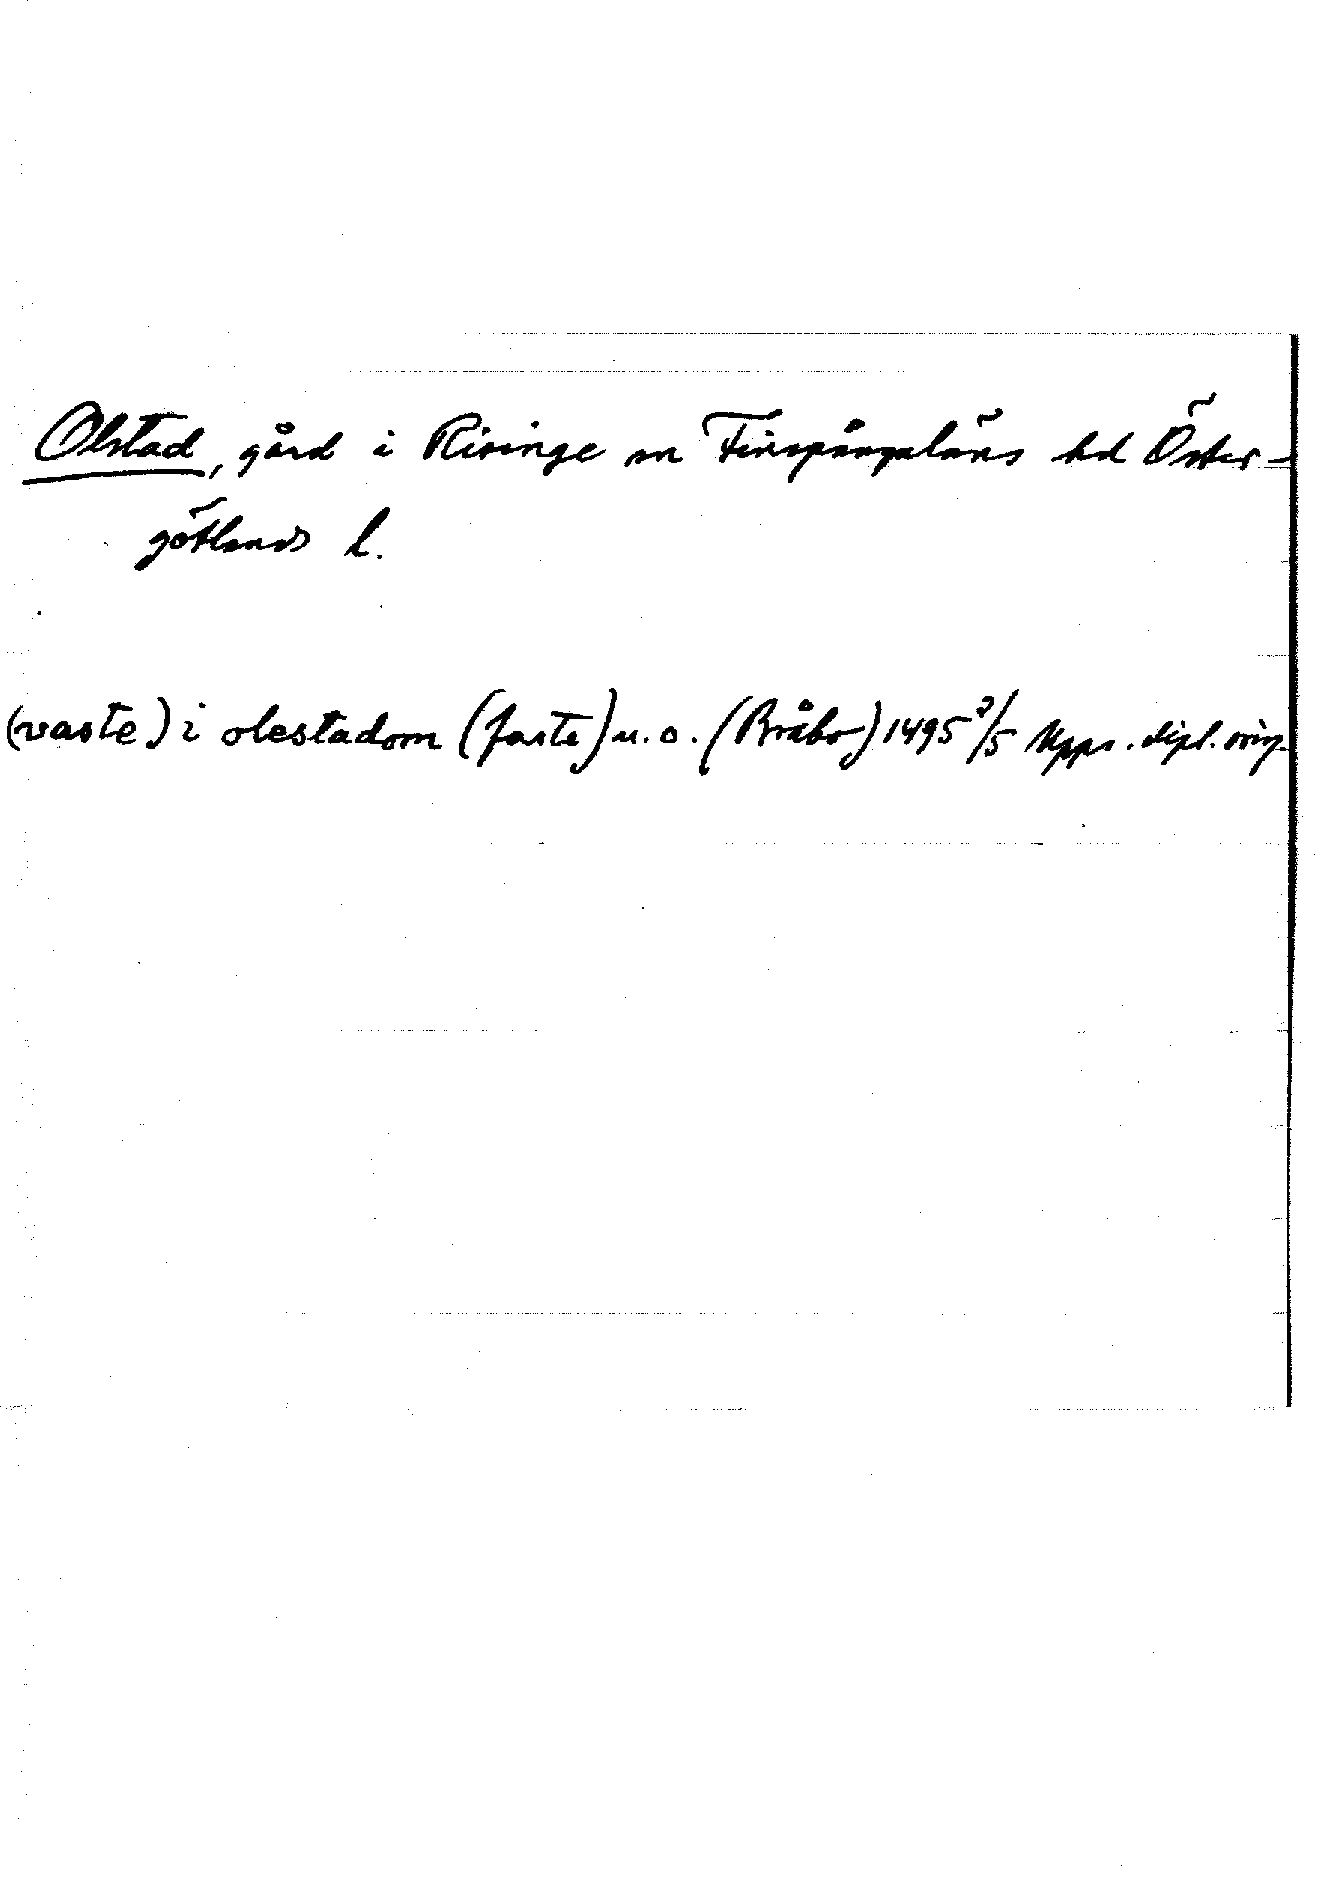 Olstad, gård i Risinge sn Finspångaläns hd Öster-
götlands l.
(vaste) i olestadom (faste) u. o. (Bråbo) 1495 2/5 Upps. dipl. orig.